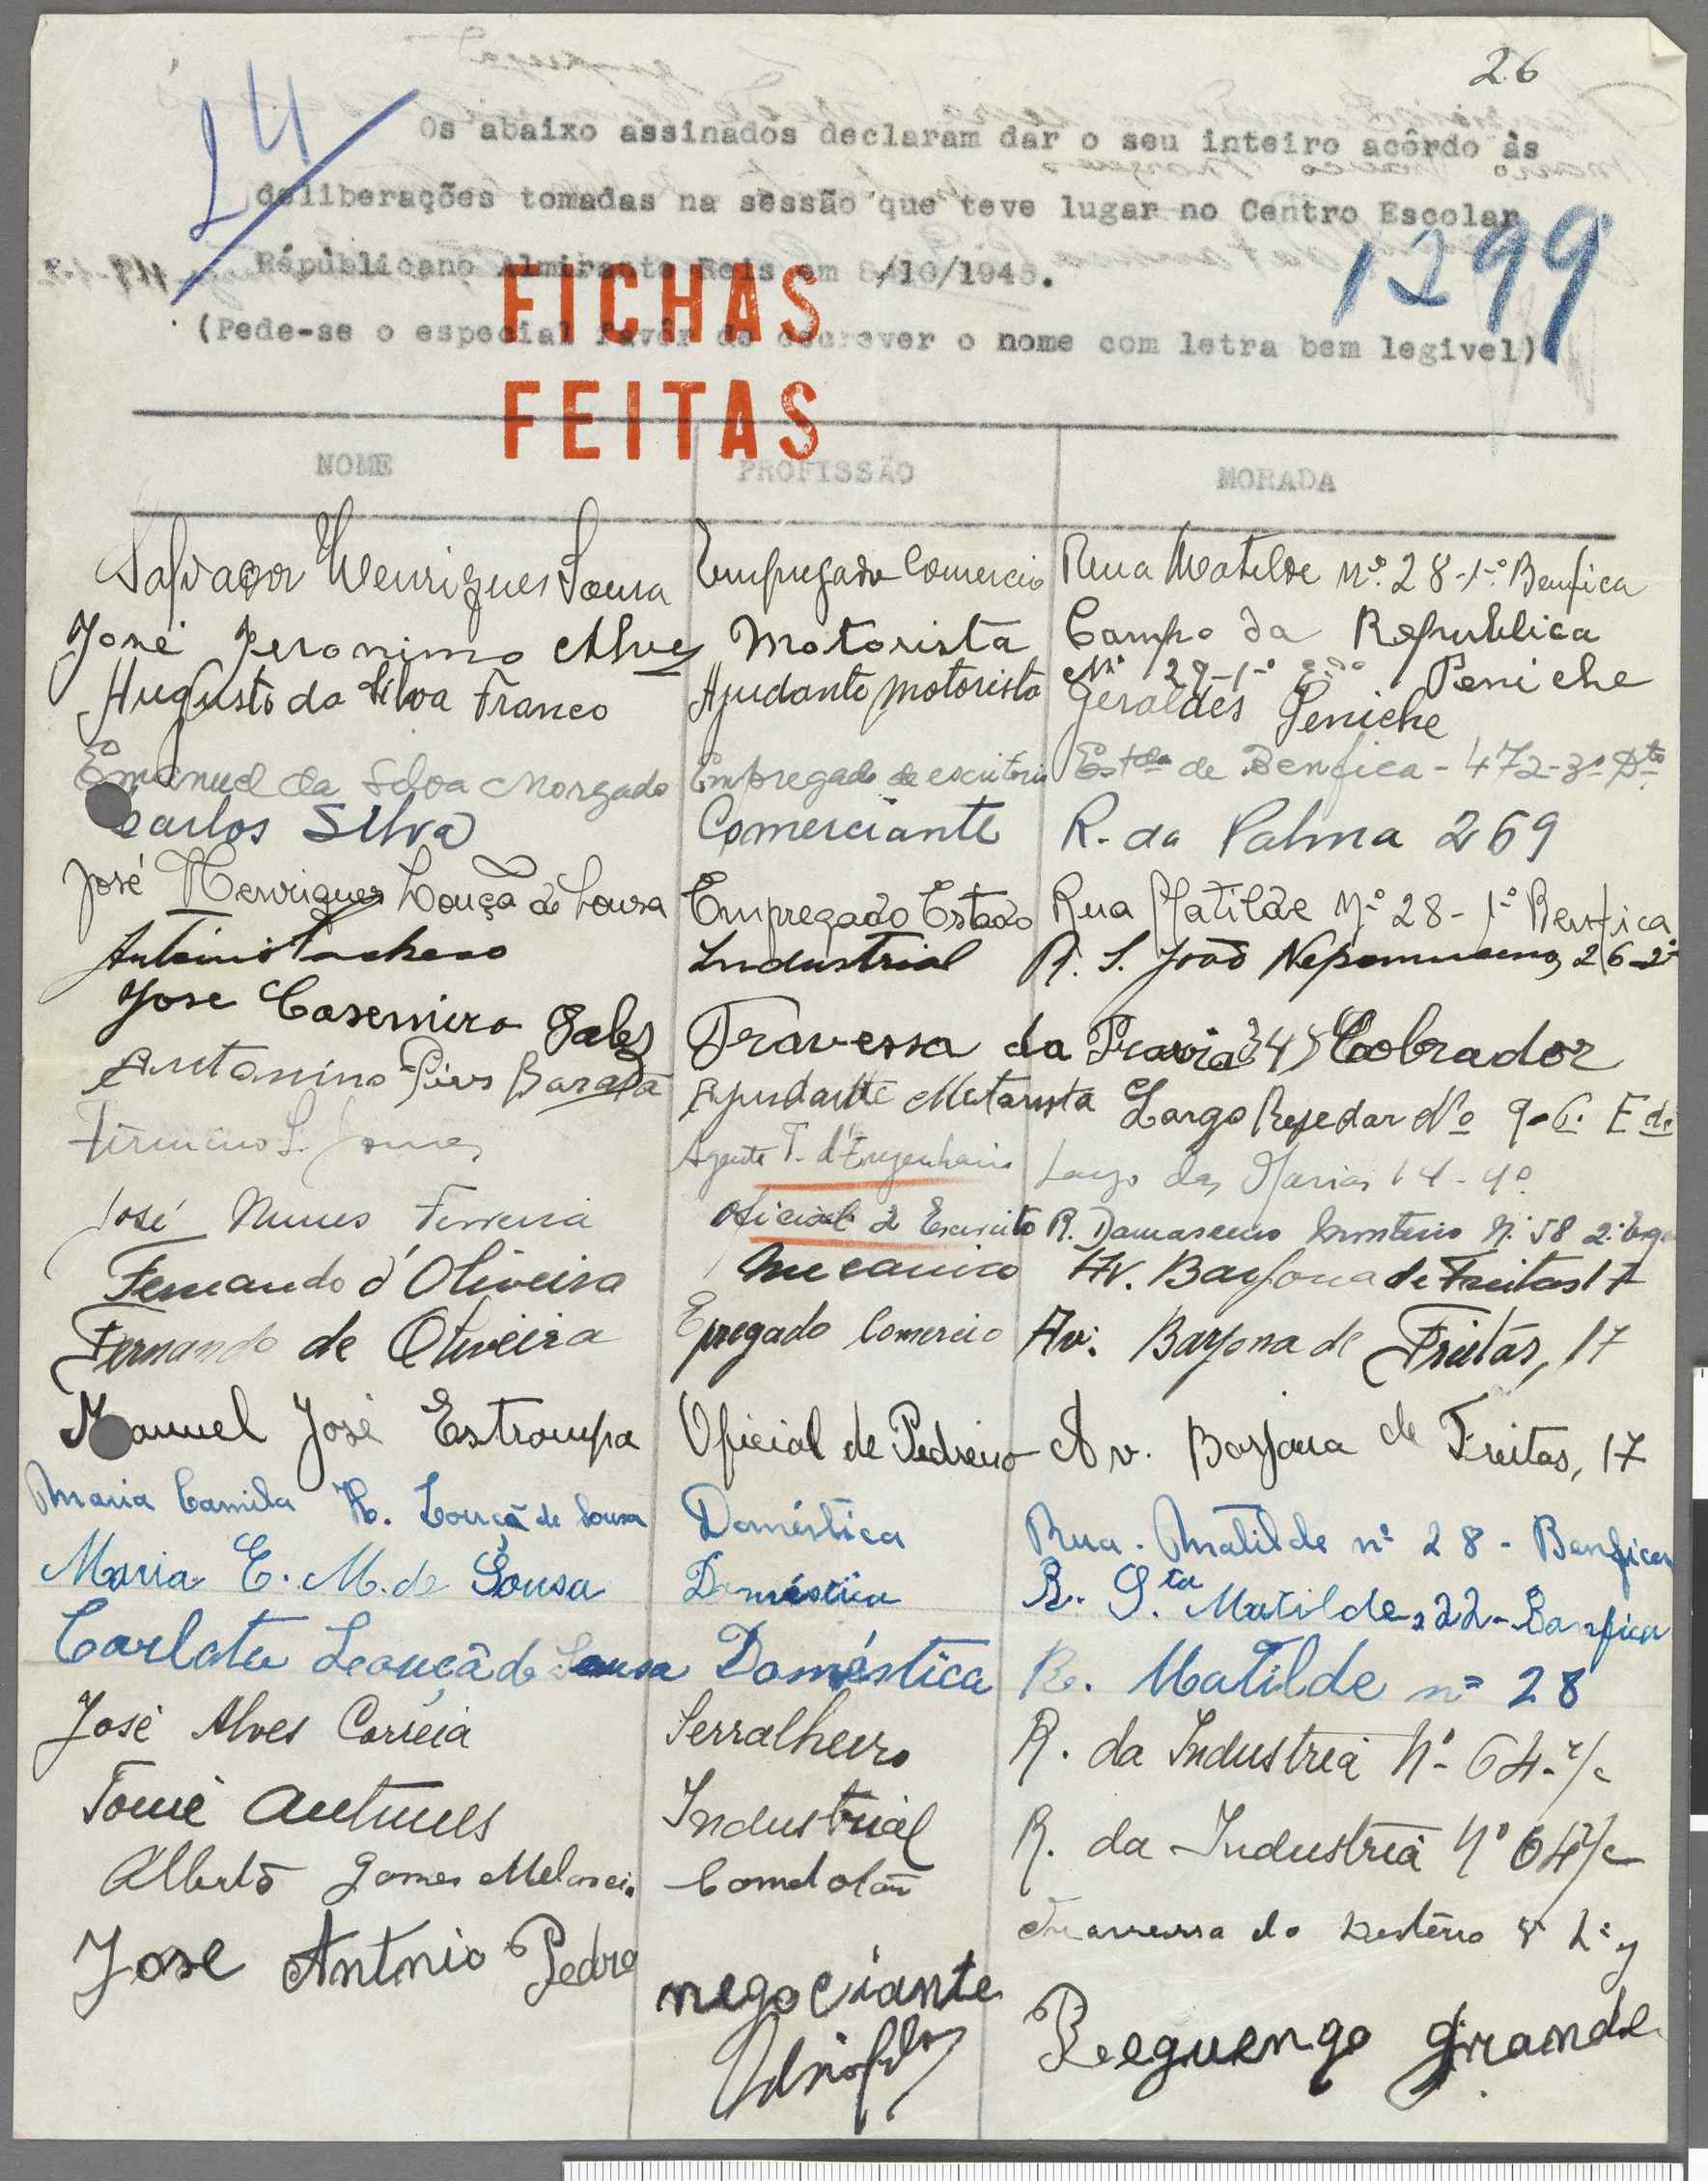 26
24
Os abaixo assinados declaram dar o seu inteiro acôrdo às
deliberações tomadas na sessão que teve lugar no Centro Escolar
Républicano Almirante Reis em 8/10/1945.
1299
(Pede-se o especial favôr de escrever o nome com letra bem legivel)
FICHAS
FEITAS
NOME PROFISSÃO MORADA
Salvador Henriques Sousa Empregado Comercio Rua Matilde nº 28-1º Benfica
José Jeronimo Alves Motorista Campo da Republica
Nº 29-1º Peniche
Augusto da Silva Franco Ajudante motorista Geraldes Peniche
Emanuel da Silva Morgado Empregado de escritório Estda de Benfica-472-3º Dto
Carlos Silva Comerciante R. da Palma 269
José Henriques Louçã de Sousa Empregado Estado Rua Matilde Nº 28-1º Benfica
António Pacheco Industrial R. S. João Nepomuceno, 26-2º
Jose Casemiro Travessa da 34 Cobrador
Antonino Pires Barata Ajudante Motorista Largo Nº 9-6º E de
Firmino S. Agente T. d'Engenharia Largo das 14-4º
José Nunes Ferreira Oficial do Exercito R. Damasceno Monteiro Nº 58 2º Esq
Fernando d'Oliveira Mecanico Av. Barjona de Freitas 17
Fernando de Oliveira Epregado Comercio Av. Barjona de Freitas, 17
Manuel José Estroumpa Oficial de Pedreiro Av. Barjona de Freitas, 17
Maria Camila H. Louçã de Sousa Doméstica Rua Matilde nº 28 - Benfica
Maria E. M. de Sousa Doméstica R. Sta Matilde, 22-Benfica
Carlota Leouçã de Sousa Doméstica R. Matilde nº 28
José Alves Correia Serralheiro R. da Industria Nº 64-r/c
Tomé Antunes Industrial R. da Industria Nº 64 r/c
Alberto Gomes Travessa do Desterro 8
Jose Antonio Pedro negociante Reeguengo grande